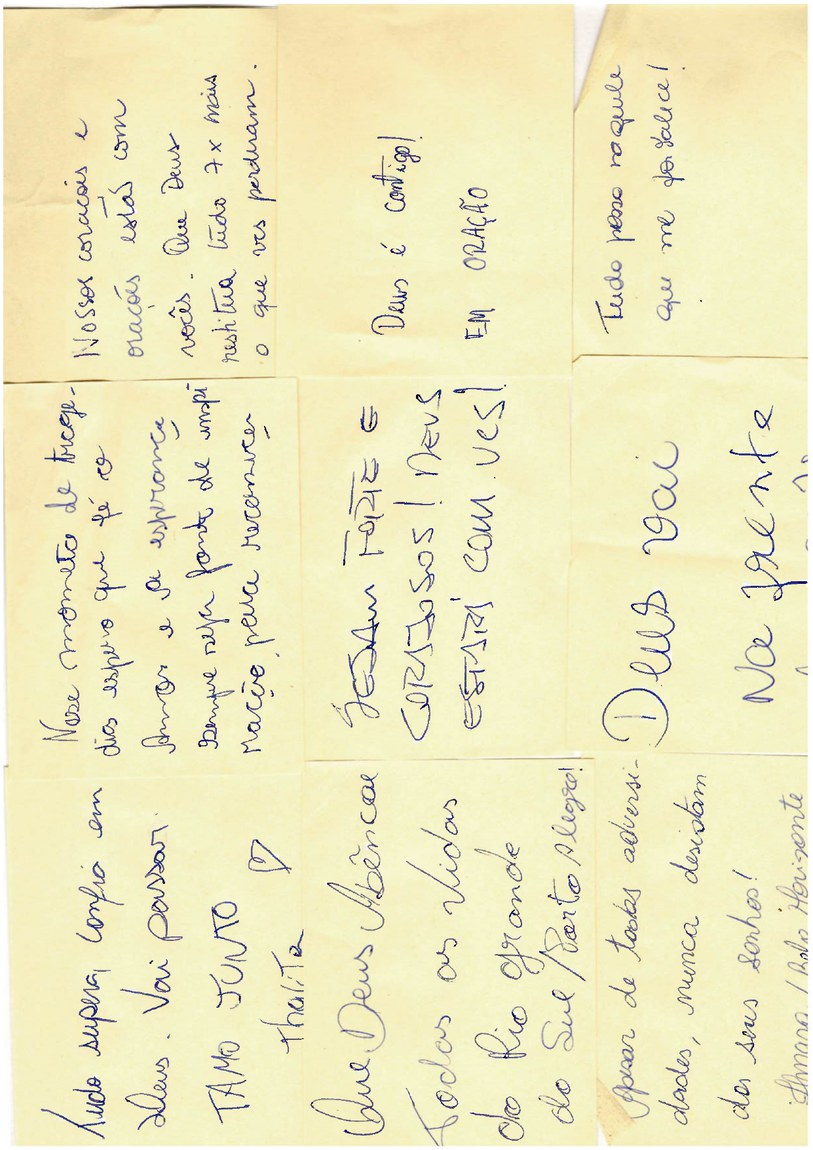 Tudo supera, confia em
Deus. Vai passar.
TAMO JUNTO ♡
Thalita
Nesse mometo de trage-
dias espero que fé o
Amor e a esperança
sempre seja fonte de inspi
Mação, para recomeçar
Nossos coracois e
oracois estas com
vocês. Que Deus
restitua tudo 7x mais
o que vcs perderam.
Que Deus Abêncoe
Todas as Vidas
do Rio grande
do Sul / Porto Alegre!
SEJAM FORTE E
CORAJOSOS! DEUS
ESTARÁ COM VCS!
Deus é contigo!
EM ORAÇÃO
Apesar de todas adversi-
dades, nunca desistam
dos seus sonhos!
/ Belo Horizonte
Deus vai
Na frente
Tudo posso naquele
que me fortalece!